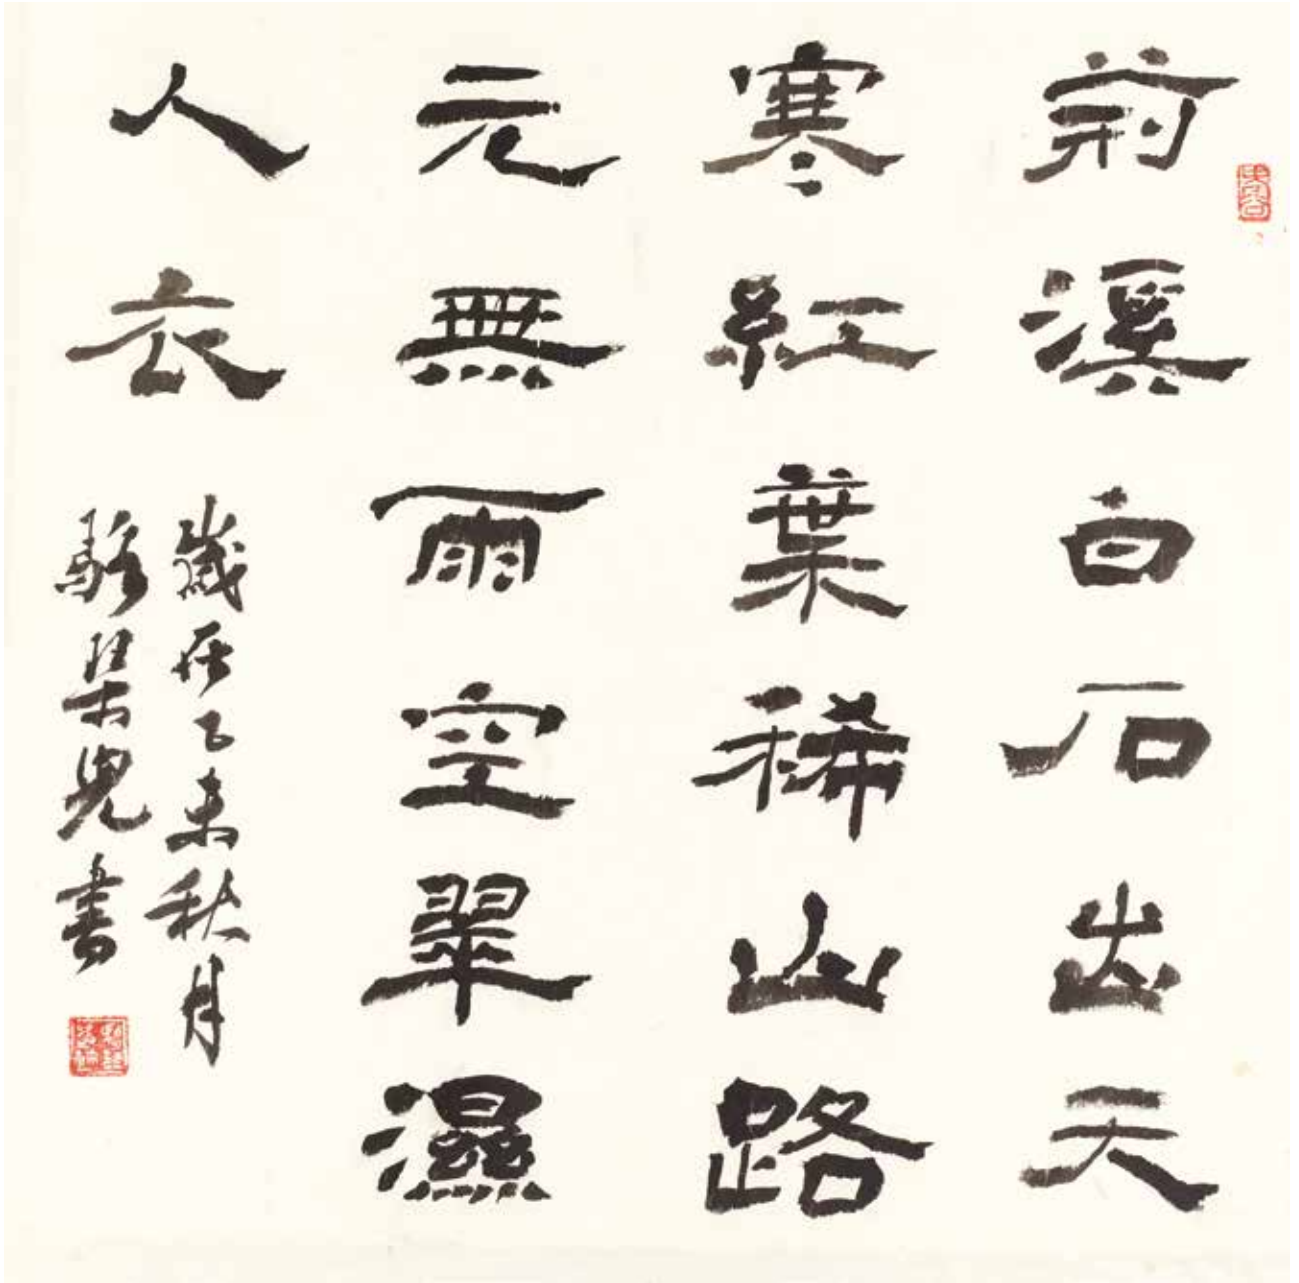 荊溪白石出天
寒紅葉稀山路
元無雨空翠濕
人衣
歲在乙未秋月
駱兒書